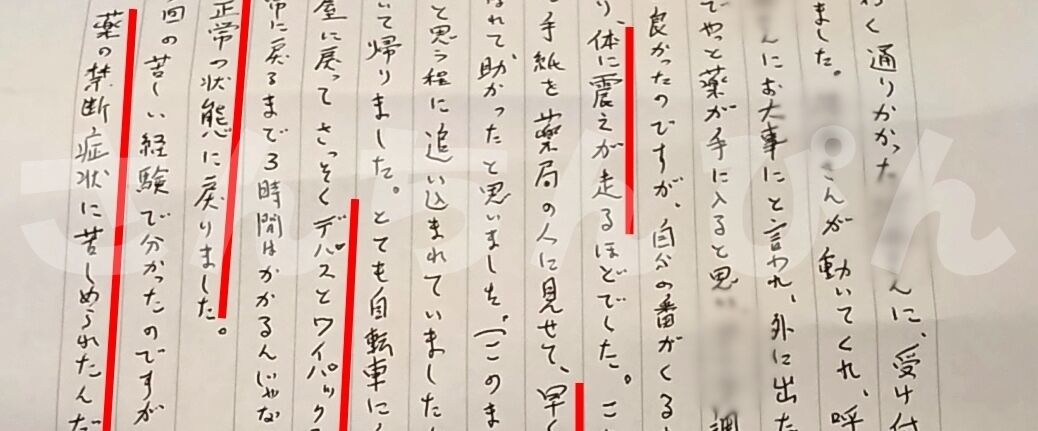 く通りかかった んに、受け付
ました。 さんが動いてくれ、呼
んにお大事にと言われ、外に出た
でやっと薬が手に入ると思い 調
良かったのですが、自分の番がくる
り、体に震えが走るほどでした。こ
手紙を薬局の人に見せて、早く
なれて助かったと思いました。「このま
と思う程に追い込まれていました
いて帰りました。とても自転車に
屋に戻ってさっそくデパスとワイパックス
常に戻るまで3時間はかかるんじゃな
正常の状態に戻りました。
回の苦しい経験で分かったのですが
薬の禁断症状に苦しめられたんだ
こんちんぴん